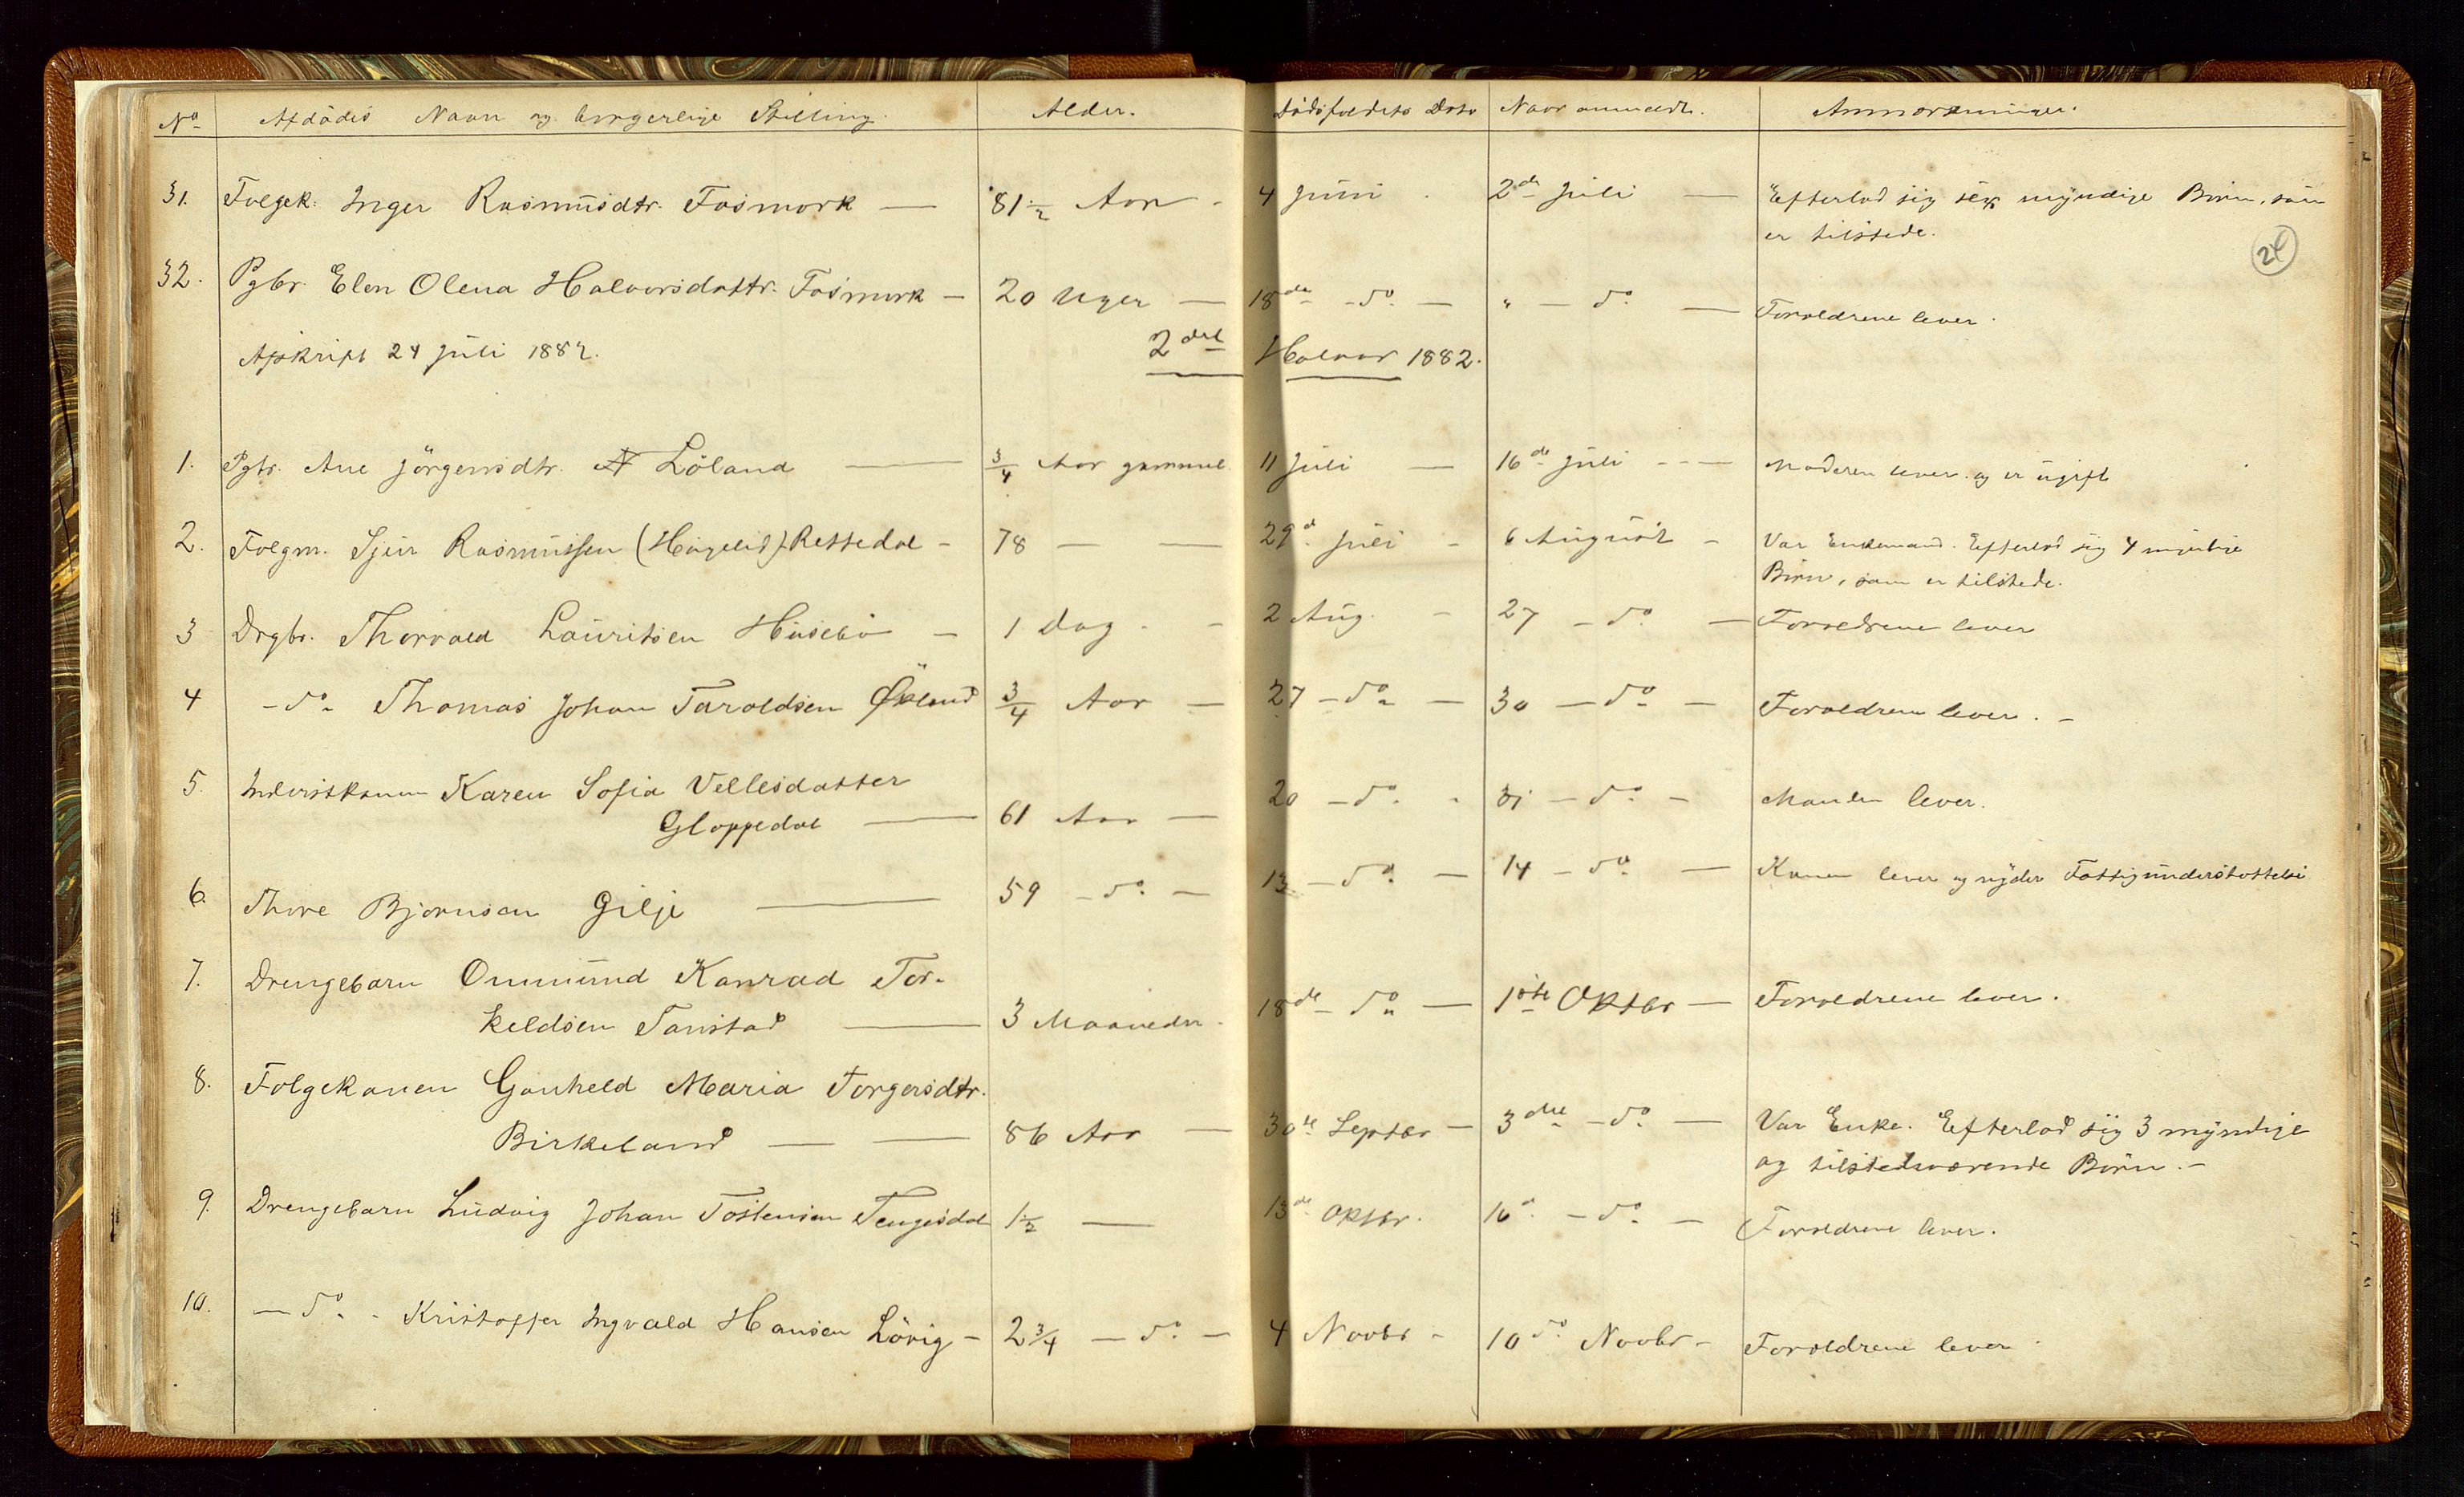 No Afdødes Navn og borgerlige Stilling. Alder. Dødsfaldets Dato Naar anmeldt. Anmærkninger.
31. Folgek. Inger Rasmusdtr. Fosmork — 81½ Aar - 4 Juni - 2de Juli — Efterlod sig sex myndige Börn, som
er tilstede.
24
32. Pgbr. Elen Olena Halvorsdattr. Fosmork — 20 Uger — 18de - do. — " — do. — Foraldrene lever.
Afskrift 24 Juli 1882. 2det Halvaar 1882.
1. Pgbr. Ane Jörgensdtr. Löland — 3/4 Aar gammel 11 Juli — 16de Juli - — Moderen lever og er ugift
2. Folgm. Sjur Rasmussen (Haugelid) Rettedal - 78 — — 29d. Juli - 6 August - Var Enkemand. Efterlod sig 4 myndige
Börn, som er tilstede.
3 Drgbr. Thorvald Lauritsen Husebö - 1 Dag. - 2 Aug. - 27 - do. — Foraldrene lever
4 - do. Thomas Johan Taroldsen Öxland 3/4 Aar — 27 - do. — 30 — do. — Foraldrene lever. -
5. Inderstkonen Karen Sofia Vellesdatter
Gloppedal — 61 Aar — 20 - do. - 31 — do. - Manden lever.
6. Thore Bjornsen Gilje — 59 - do. — 13 - do. — 14 - do. — Konen lever og nyder Fattigunderstottelse
7. Drengebarn Ommund Konrad Tor-
keldsen Tanstad — 3 Maaneder - 18de do. — 1ste Oktbr — Foraldrene lever.
8. Folgekonen Gunheld Maria Torgersdtr.
Birkeland — — 86 Aar — 30te Septbr — 3die - do. — Var Enke. Efterlod sig 3 myndige
og tilstedvarende Börn. -
9. Drengebarn Ludvig Johan Tostensen Tengesdal 1½ — 13de Oktbr. 16d. - do. — Foraldrene lever.
10. — do. - Kristoffer Ingvald Hansen Lövig - 2 3/4 — do. - 4 Novbr - 10do. Novbr - Foraldrene lever